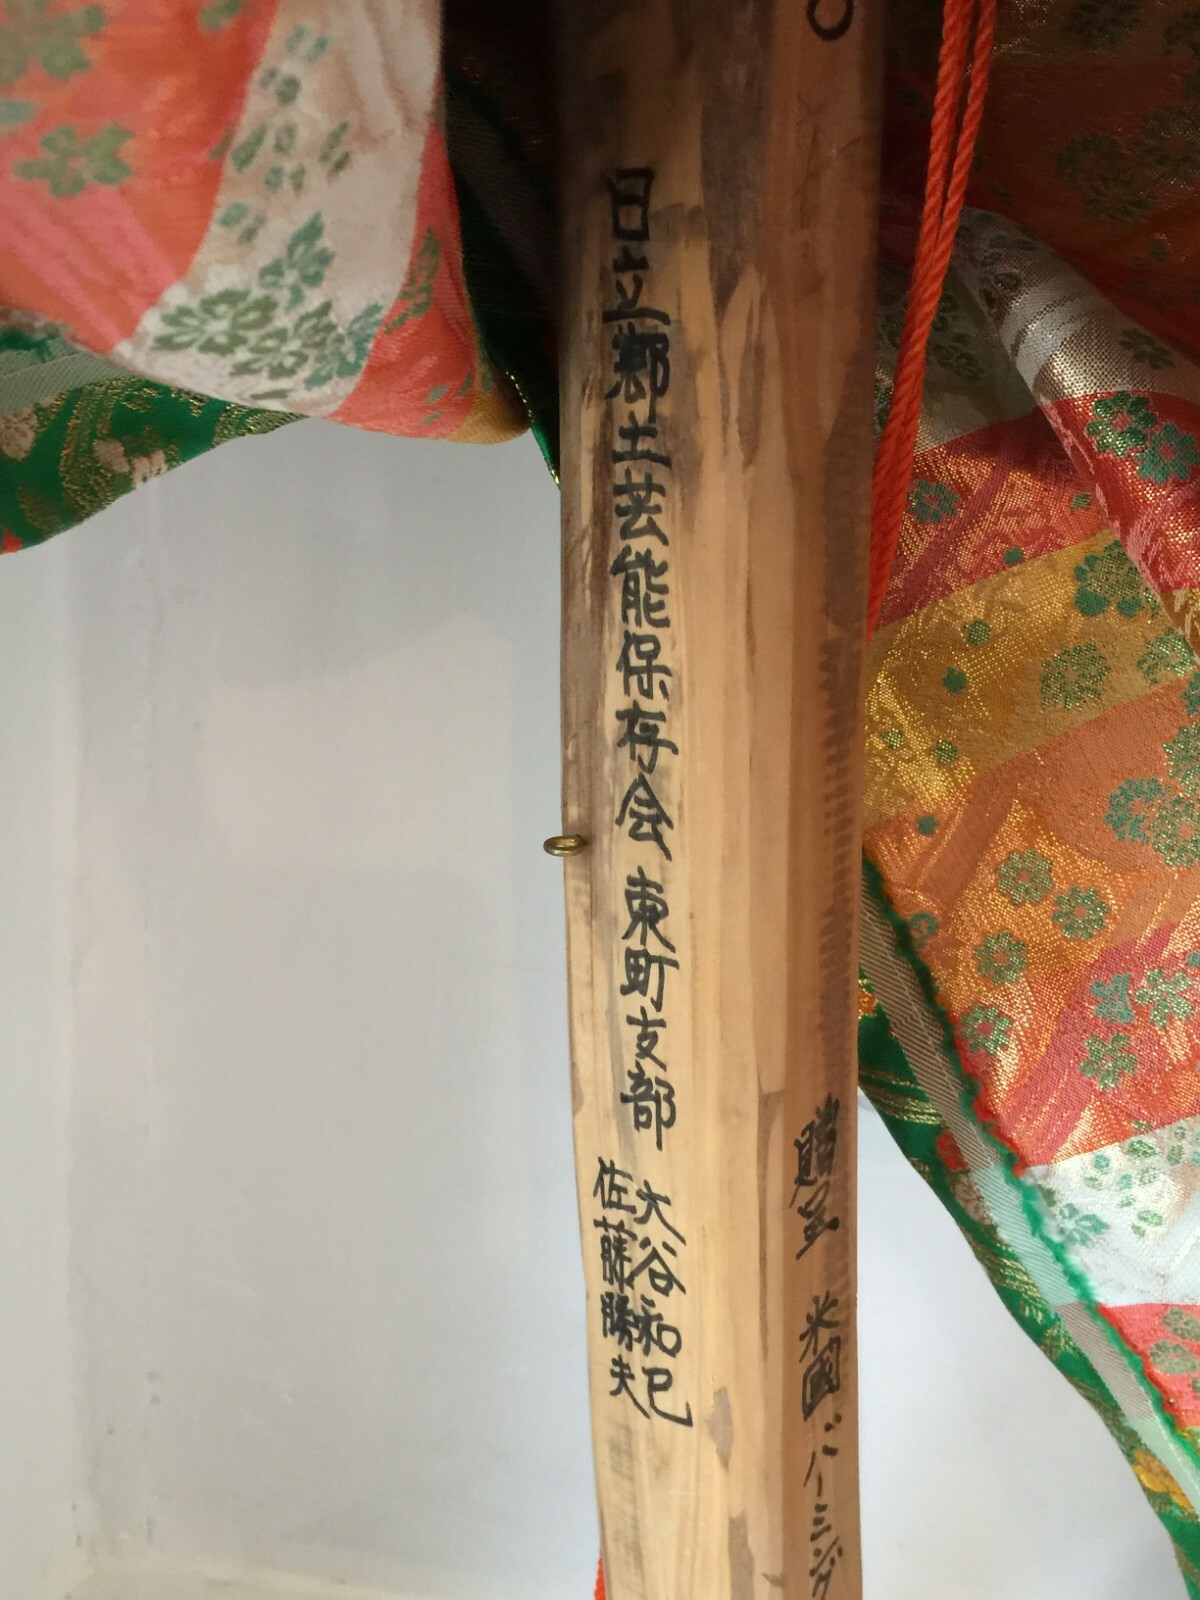 贈呈 米國バーミング
日立郷土芸能保存会 東町支部
大谷和巳
佐藤勝夫